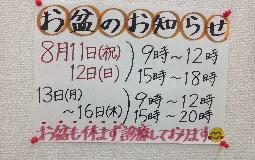 お盆のお知らせ
8月11日(祝) 9時〜12時
12日(日) 15時〜18時
13日(月) 9時〜12時
〜16日(木) 15時〜20時
お盆も休まず診療しております